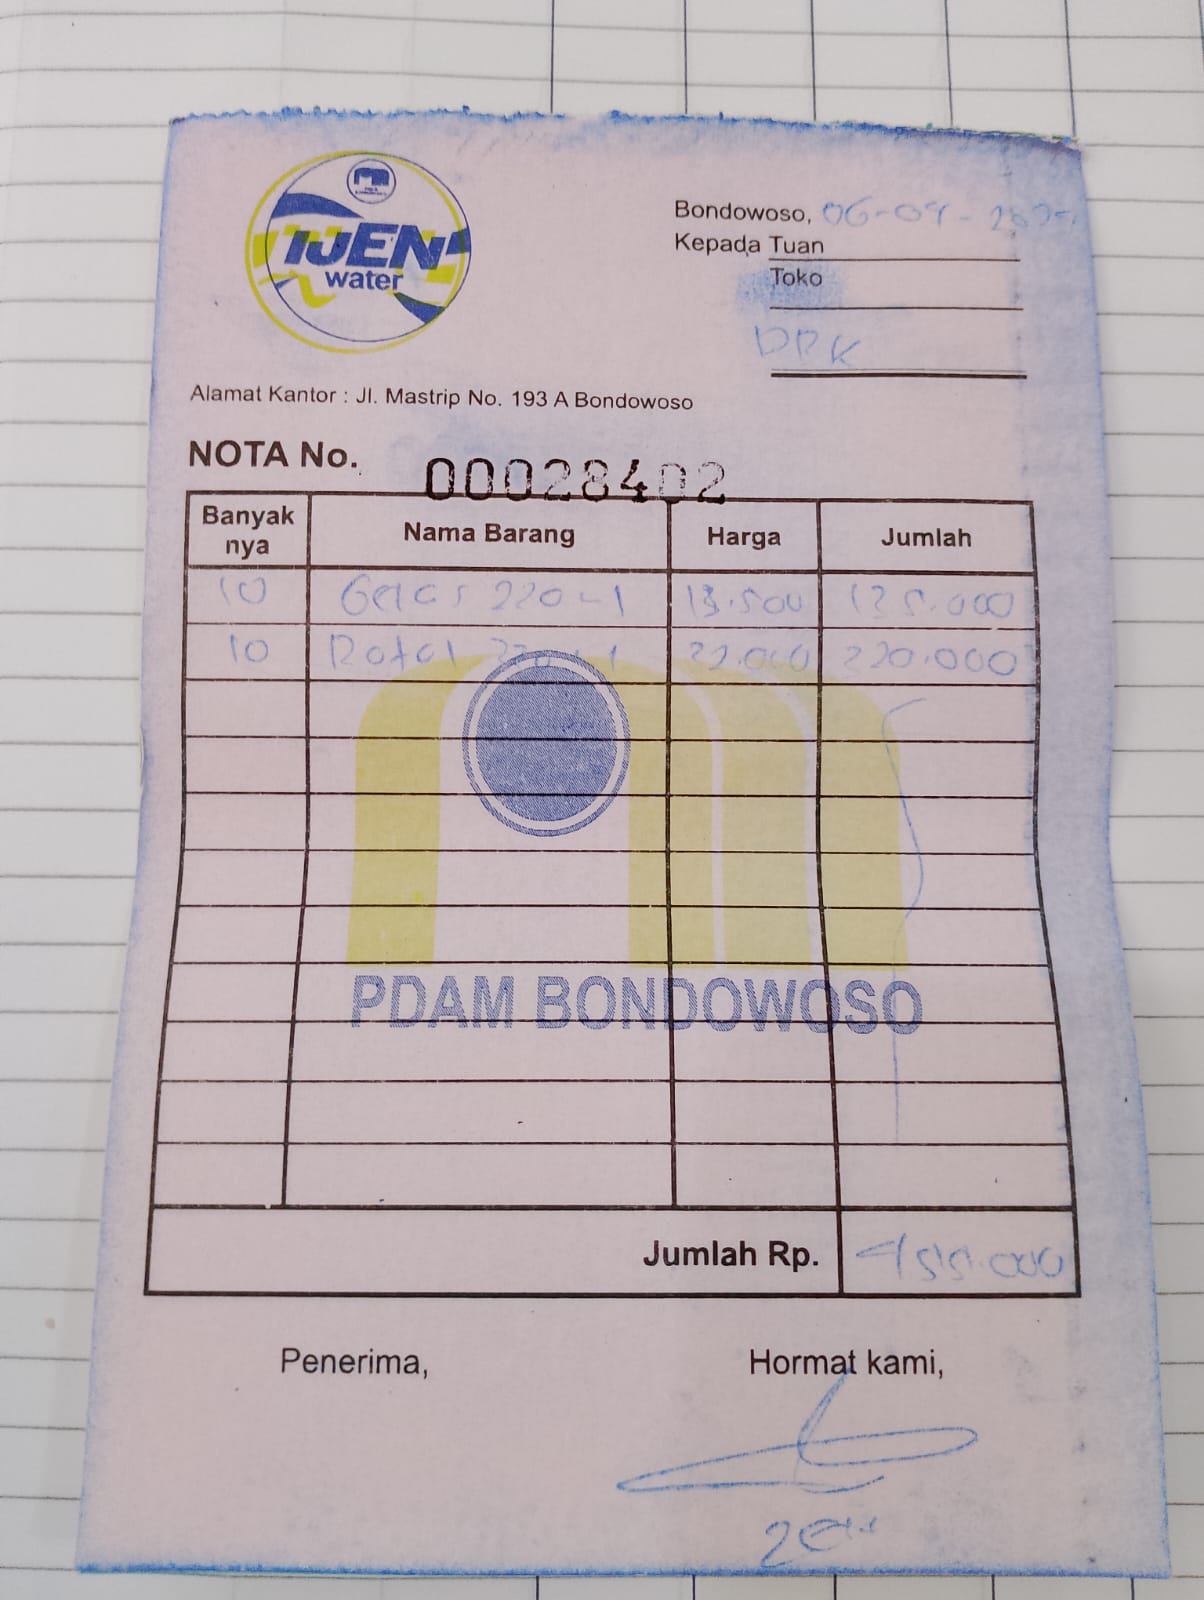 IJEN
water
Bondowoso, 06-09-
Kepada Tuan
Toko
DPK
Alamat Kantor : Jl. Mastrip No. 193 A Bondowoso
NOTA No. 00028402
Banyak nya Nama Barang Harga Jumlah
10 Gelas 220-1 13.500 135.000
10 Botol 22.000 220.000
PDAM BONDOWOSO
Jumlah Rp.
Penerima, Hormat kami,